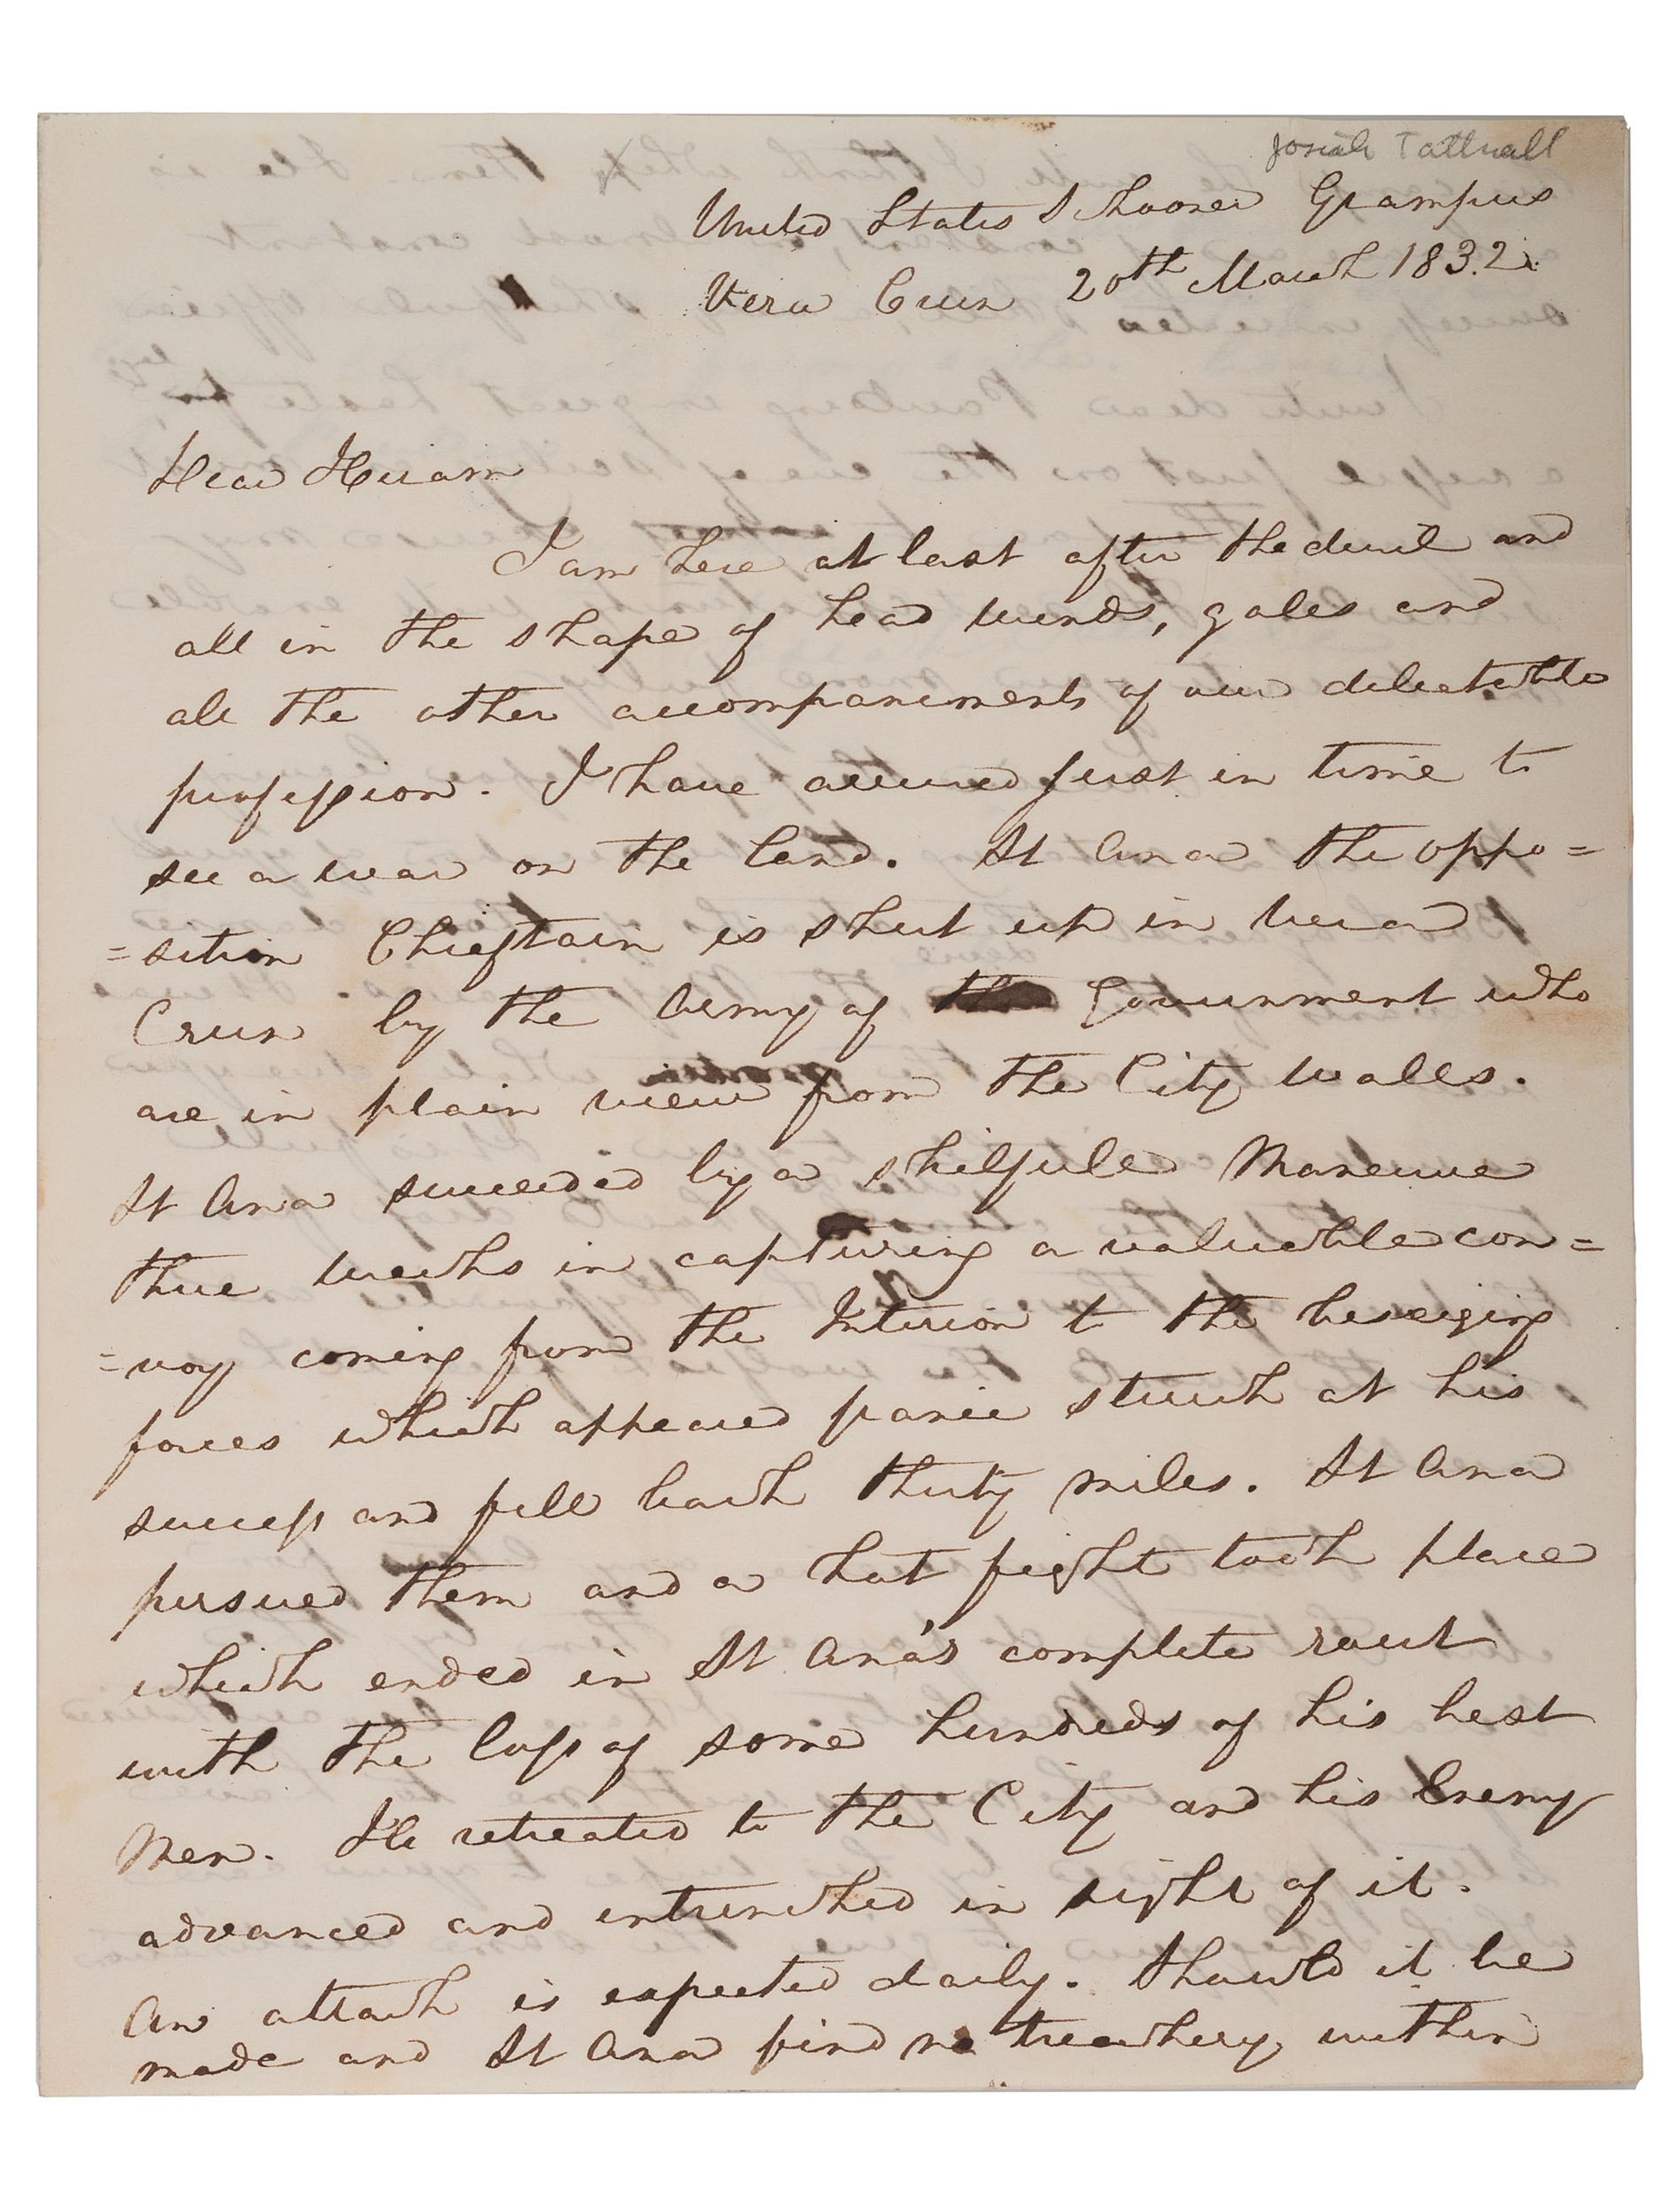 Josiah Tattnall
United States Schooner Grampus
Vera Cruz 20th March 1832.
Dear Hiram
I am here at last after the devil and
all in the shape of head winds, gales and
all the other accompaniments of our delectable
profession. I have arrived just in time to
see a war on the land. St Ana the oppo=
=sition Chieftain is shut up in Vera
Cruz by the Army of the Government who
are in plain view from the City walls.
St Ana succeeded by a skilfule Maneuve
three weeks in capturing a valuable con=
=voy coming from the Interior to the beseiging
forces which appeared panic struck at his
success and fell back thirty miles. St Ana
pursued them and a hot fight took place
which ended in St Ana's complete rout
with the loss of some hundreds of his best
Men. He retreated to the City and his Enemy
advanced and intrenched in sight of it.
An attack is expected daily. Should it be
made and St Ana find no treachery within